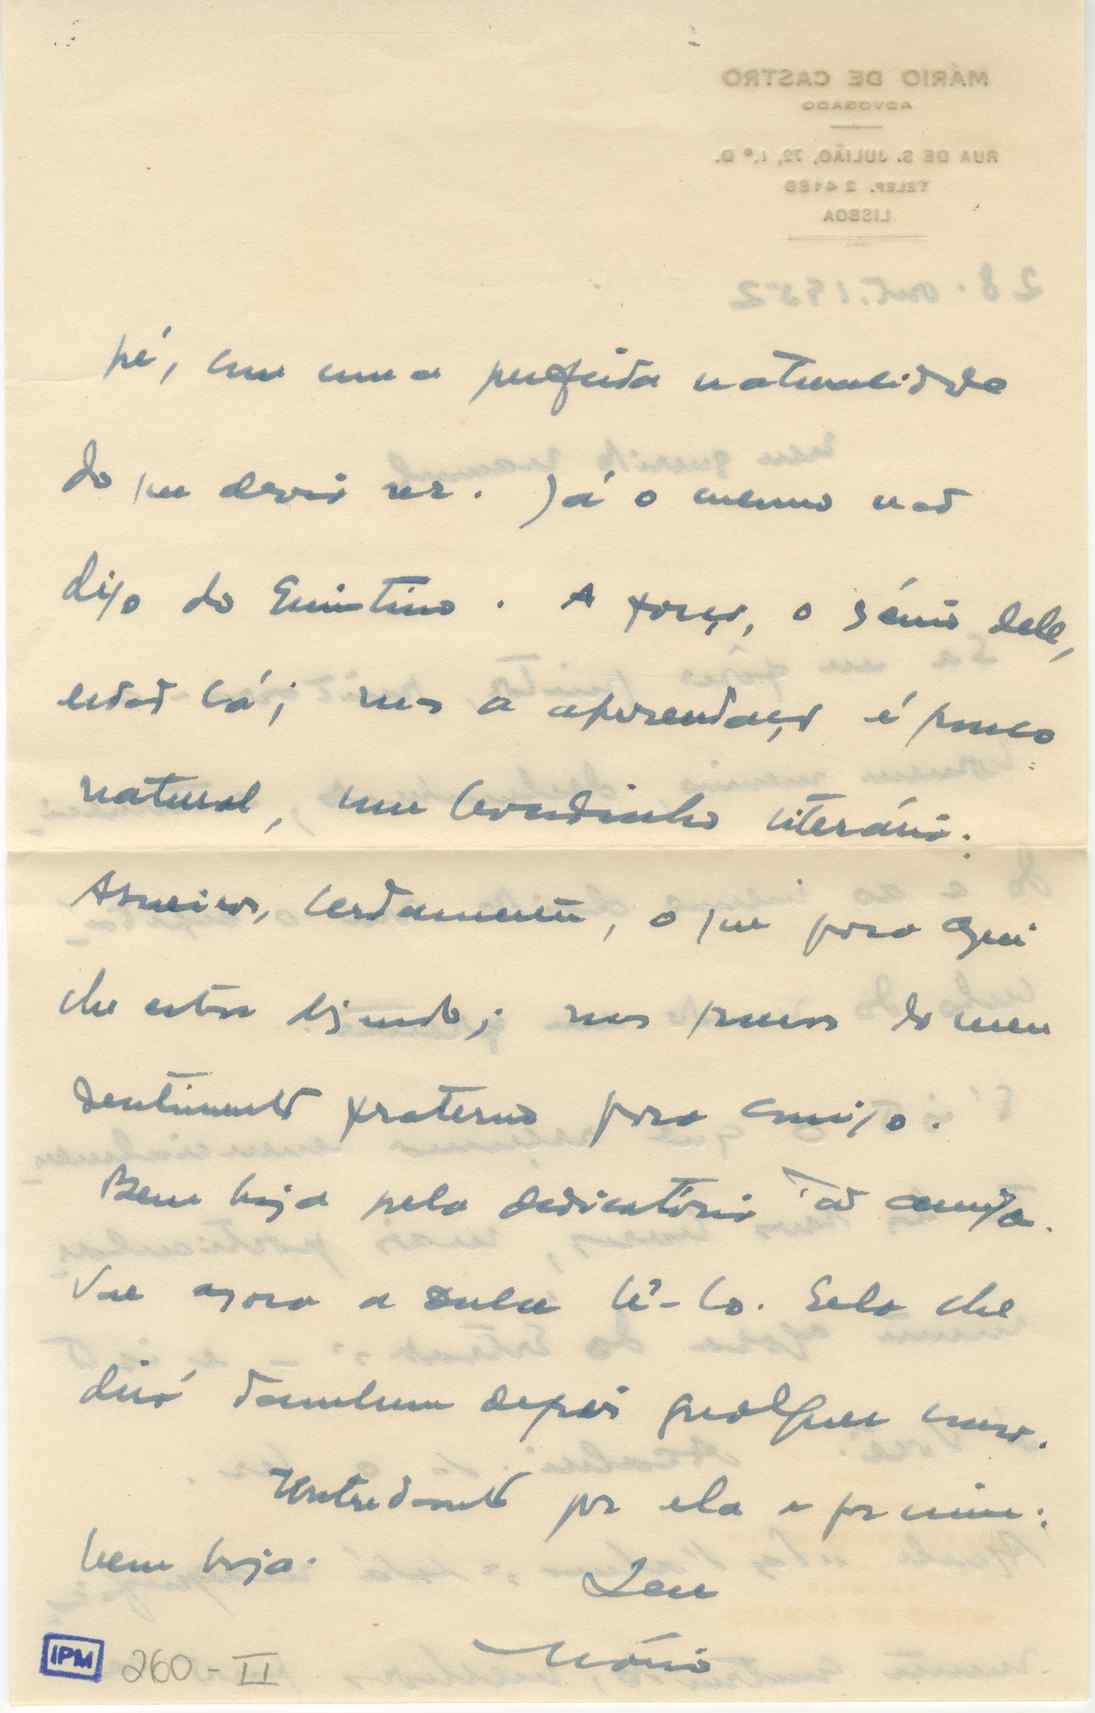 MÁRIO DE CASTRO
ADVOGADO
RUA DE S. JULIÃO, 72, 1.º D.
TELEF. 2 4186
LISBOA
28. out. 1952
pé, com uma perfeita naturalidade
do que devia ser. Já o mesmo não
digo do Quintino. A força, o génio dele,
estão lá; mas a apresentação é pouco
natural, um bocadinho literária.
Asneiras, certamente, o que para aqui
lhe estou dizendo; mas provas do meu
sentimento fraterno para consigo.
Bem haja pela dedicatória "ao amigo".
Vae agora a Dulce lê-lo. Ela lhe
dirá tambem depois qualquer cousa.
Entretanto por ela e por mim:
bem haja.
Seu
Mário
IPM 260-II